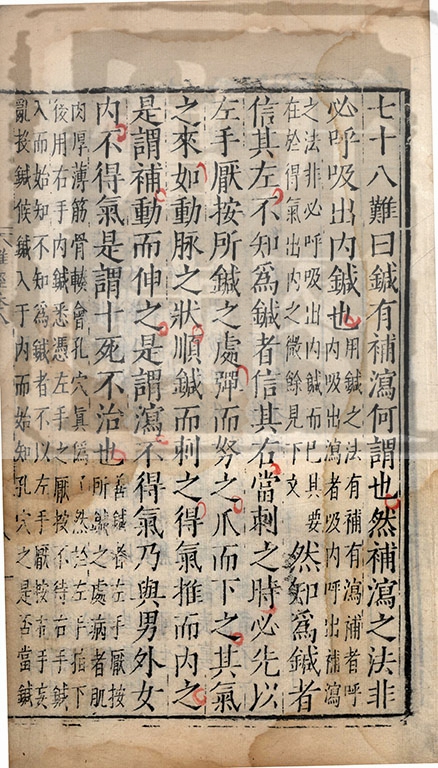 七十八難曰鍼有補瀉何謂也然補瀉之法非
必呼吸出内鍼也用鍼之法有補有瀉補者呼
内吸出瀉者吸内呼出補瀉
之法非必呼吸出内鍼而已其要
在於得氣出内之微餘見下文
然知為鍼者
信其左不知為鍼者信其右當刺之時必先以
左手厭按所鍼之處彈而努之爪而下之其氣
之來如動脉之狀順鍼而刺之得氣推而内之
是謂補動而伸之是謂瀉不得氣乃與男外女
内不得氣是謂十死不治也善鍼者左手厭按
所鍼之處病者肌
肉厚薄筋骨輭會孔穴真為了然於左手拍下
後用右手内鍼悉憑左手之厭按不待右手鍼
入而始知不知為鍼者不以左手厭按右手妄
亂投鍼候鍼入于内而始知孔穴之是否當鍼